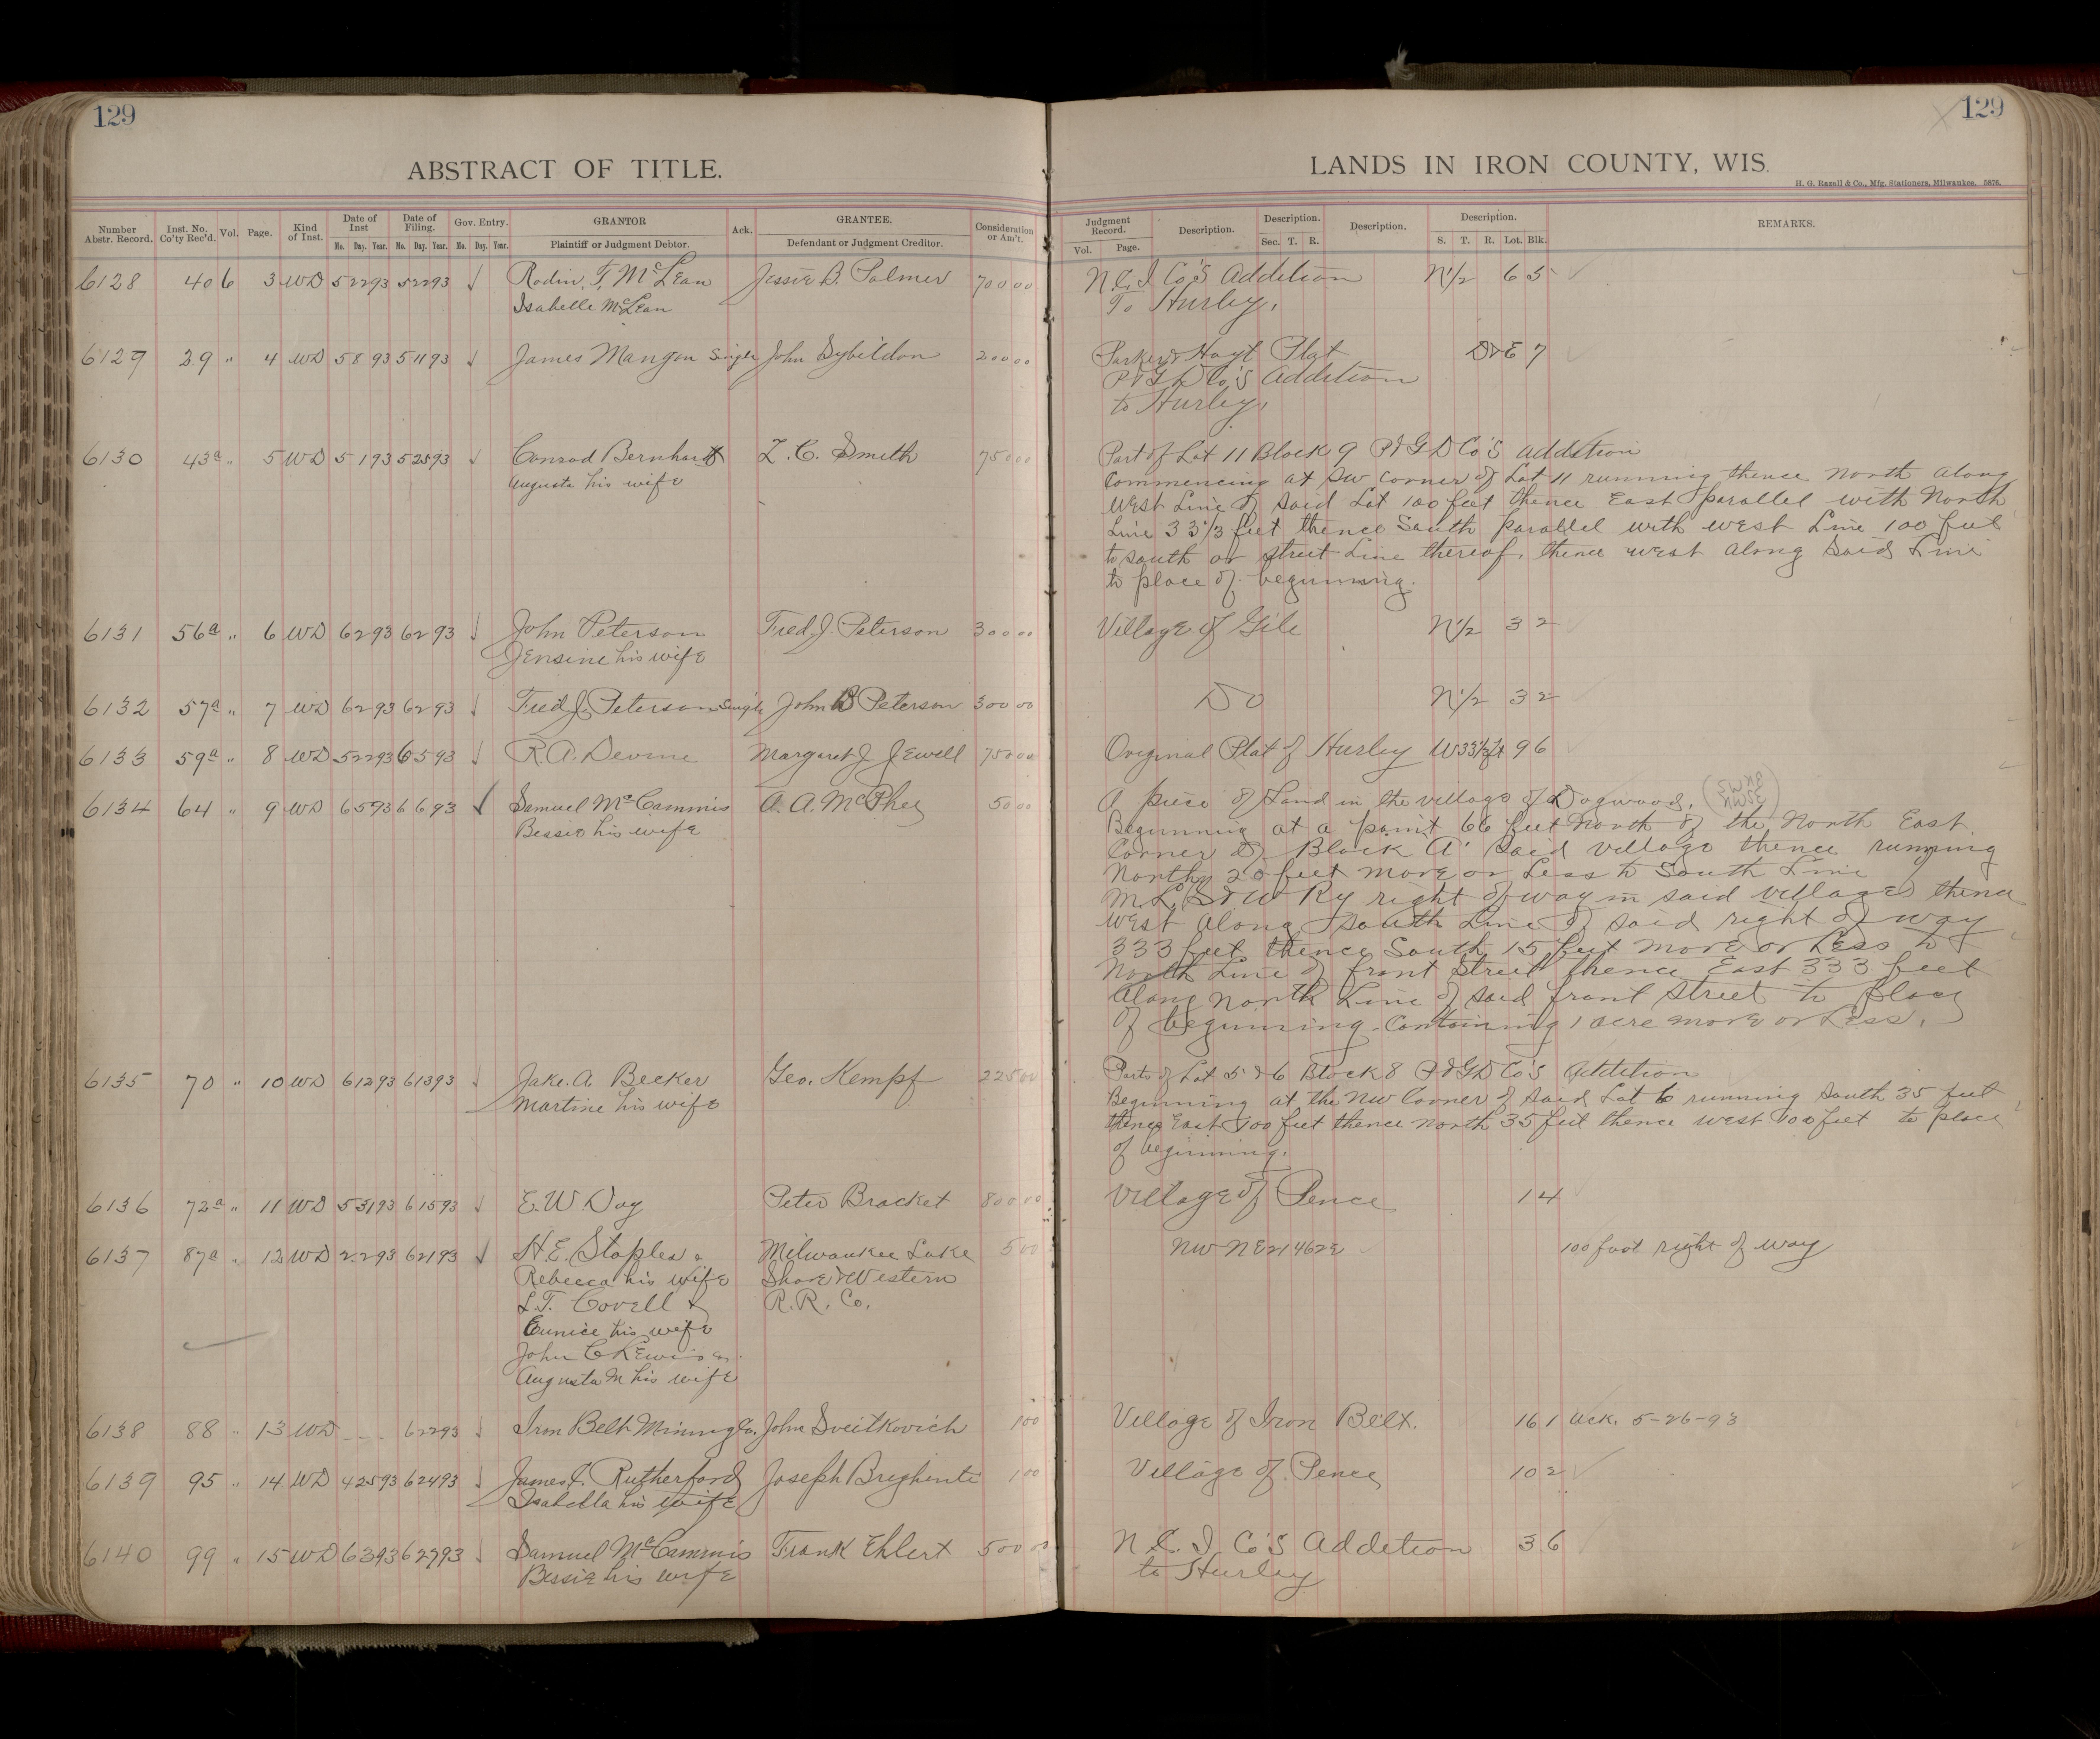 129
129
ABSTRACT OF TITLE.
LANDS IN IRON COUNTY, WIS.
H. G. Razall & Co., Mfg. Stationers, Milwaukee. 5876.
Number Abstr. Record. Inst. No. Co'ty Rec'd. Vol. Page. Kind of Inst. Date of Inst No. Day. Year. Date of Filing. No. Day. Year. Gov. Entry. No. Day. Year. GRANTOR Plaintiff or Judgment Debtor. Ack. GRANTEE. Defendant or Judgment Creditor. Consideration or Am't.
Judgment Record. Vol. Page. Description. Description. Sec. T. R. Description. Description. S. T. R. Lot. Blk. REMARKS.
6128 40 6 3 WD 5 22 93 5 22 93 Rodin. T, McLean Jessie B. Palmer 700 00 N.C.I Co's Addition N1/2 6 5
Isabelle McLean To Hurley,
6129 39 " 4 WD 5 8 93 5 11 93 James Mangan Single John Sybeldon 200 00 Parker & Hoyt Plat D & E 7
P & G D Co's Addition
to Hurley,
6130 43a " 5 WD 5 1 93 5 25 93 Conrad Bernhardt L. C. Smith 750 00 Part of Lot 11 Block 9 P & G D Co's addition
Augusta his wife Commencing at SW corner of Lot 11 running thence North along
West Line of said Lot 100 feet thence East parallel with North
Line 33 1/3 feet thence South parallel with west Line 100 feet
to south or street Line thereof, thence west along said Line
to place of beginning.
6131 56a " 6 WD 6 2 93 6 2 93 John Peterson Fred J. Peterson 300 00 Village of Gile N1/2 3 2
Jensine his wife
6132 57a " 7 WD 6 2 93 6 2 93 Fred J. Peterson Single John B Peterson 300 00 Do N1/2 3 2
6133 59a " 8 WD 5 22 93 6 5 93 R. A. Devine Margaret J Jewell 750 00 Original Plat of Hurley W33 1/3 ft 9 6
6134 64 " 9 WD 6 5 93 6 6 93 Samuel McCammis A. A. McPhee 50 00 A piece of Land in the village of Dogwood,
Bessie his wife Beginning at a point 66 feet North of the North East
Corner of Block A' said village thence running
North 20 feet more or less to South Line
M. L. S & W Ry right of way in said village thence
west along south Line of said right of way
333 feet thence South 15 feet more or Less to
North Line of front Street thence East 333 feet
along north Line of said front street to place
of beginning. Containing 1 acre more or Less.
6135 70 " 10 WD 6 12 93 6 13 93 Jake. A Becker Geo. Kempf 225 00 Parts of Lot 5 & 6 Block 8 P & G D Co's Addition
Martine his wife Beginning at the NW Corner of said Lot 6 running South 35 feet
thence East 100 feet thence north 35 feet thence west 100 feet to place
of beginning.
6136 72a " 11 WD 5 31 93 6 15 93 E. W. Day Peter Bracket 800 00 Village of Pence 1 4
6137 87a " 12 WD 2 2 93 6 21 93 H. E. Staples & Milwaukee Lake 5 00 NW NE 21 46 2E 100 foot right of way
Rebecca his wife Shore & Western
L. T. Covell & R. R. Co.
Eunice his wife
John C Lewis &
Augusta M his wife
6138 88 " 13 WD 6 22 93 Iron Belt Mining Co. John Sveitkovich 1 00 Village of Iron Belt. 16 1 Ack. 5-26-93
6139 95 " 14 WD 4 25 93 6 24 93 James I. Rutherford Joseph Brighenti 1 00 Village of Pence 10 2
Isabella his wife
6140 99 " 15 WD 6 3 93 6 27 93 Samuel McCammis Frank Ehlert 500 00 N. C. I Co's Addition 3 6
Bessie his wife to Hurley